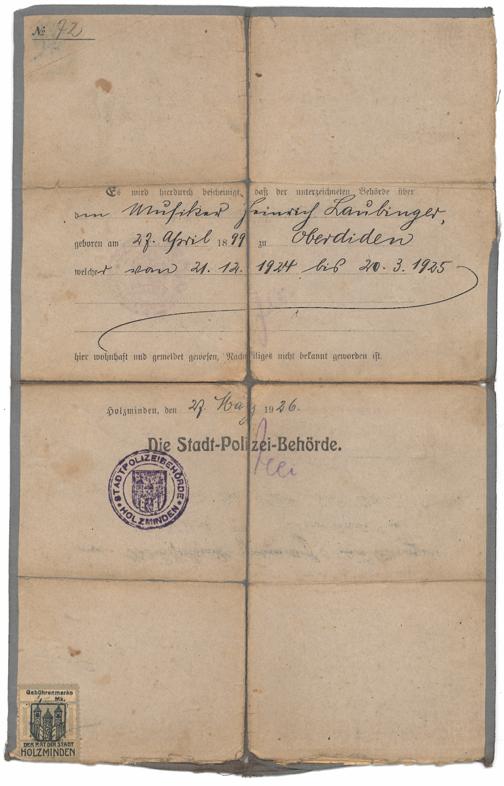 No 72
Es wird hierdurch bescheinigt, daß der unterzeichneten Behörde über
den Musiker Heinrich Laubinger,
geboren am 27. April 1899 zu Oberdiden
welcher vom 21. 12. 1924 bis 20. 3. 1925
hier wohnhaft und gemeldet gewesen, Nachteiliges nicht bekannt geworden ist.
Holzminden, den 27. May 1926.
Die Stadt-Polizei-Behörde.
STADTPOLIZEIBEHÖRDE
* HOLZMINDEN *
Gebührenmarke
Mk.
DER RAT DER STADT
HOLZMINDEN